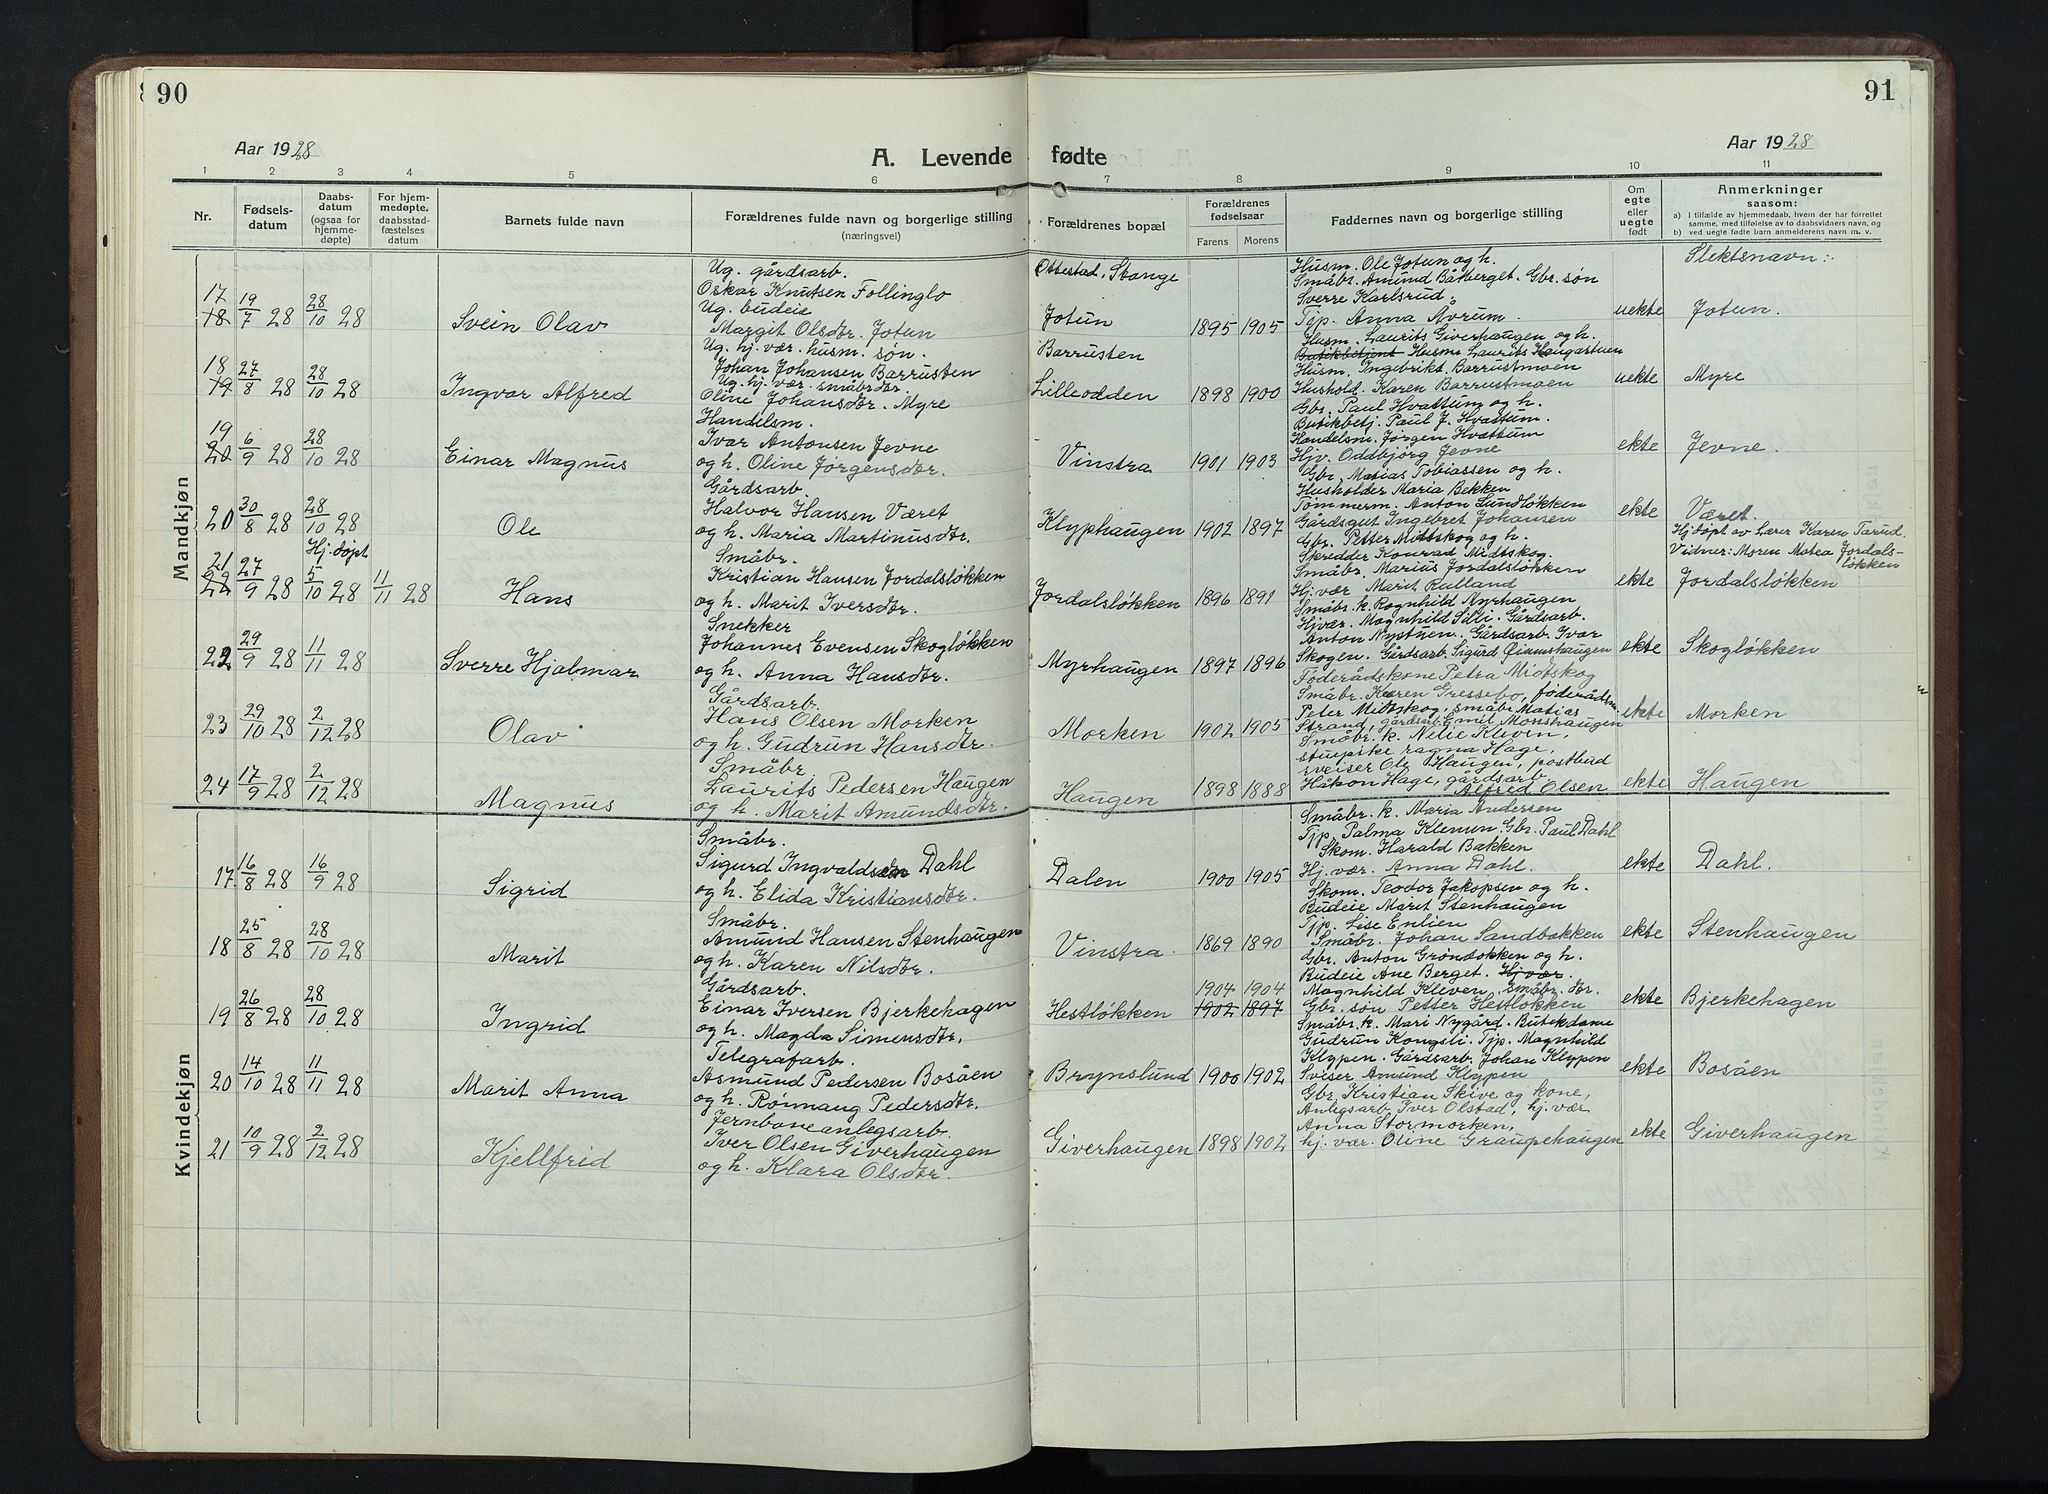 90
91
Aar 1928
A. Levende fødte
Aar 1928
1 2 3 4 5 6 7 8 9 10 11
Nr.
Fødselsdatum
Daabsdatum
(ogsaa for hjemmedøpte)
For hjemmedøpte, daabsstadfæstelses datum
Barnets fulde navn
Forældrenes fulde navn og borgerlige stilling
(næringsvei)
Forældrenes bopæl
Forældrenes fødselsaar
Farens Morens
Faddernes navn og borgerlige stilling
Om egte eller uegte født
Anmerkninger
saasom:
a) i tilfælde av hjemmedaab, hvem der har forrettet samme, med tilføielse av to daabsvidners navn, og
b) ved uegte fødte barn anmelderens navn m. v.
Slektsnavn:
Mandkjøn
17
18
19/7 28
28/10 28
Svein Olav
Ug. gårdsarb.
Oskar Knutsen Follinglo
Ug. budeie
Margit Olsdtr. Jotun
Ottestad, Stange
Jotun
1895 1905
Husm. Ole Jotun og h.
Småbr. Amund Båtberget. Gbr. søn
Sverre Karlsrud.
Tjp. Anna Avrum.
uekte
Jotun.
18
19
27/8 28
28/10 28
Ingvar Alfred
Ug. hj. vær. husm. søn.
Johan Johansen Barrusten
Ug. hj. vær. småbr. dtr.
Oline Johansdtr. Myre
Barrusten
Lilleodden
1898 1900
Husm. Laurits Giverhaugen og h.
Butikbetjent Husm Laurits Haugastuen
Husm. Ingebrikt Barrustmoen
Hushold. Karen Barrustmoen
uekte
Myre
19
20
6/9 28
28/10 28
Einar Magnus
Handelsm.
Ivar Antonsen Jevne
og h. Oline Jørgensdtr.
Vinstra
1901 1903
Gbr. Paul Hvattum og h.
Butikbetj. Paul J. Hvattum.
Handelsm. Jørgen Hvattum
Hjv. Oddbjørg Jevne
ekte
Jevne.
20
30/8 28
28/10 28
Ole
Gårdsarb.
Halvor Hansen Været
og h. Maria Martinusdtr.
Klyphaugen
1902 1897
Gbr. Matias Tobiassen og h.
Husholder Maria Bekken
Tømmerm. Anton Sundløkken
Gårdsgut Ingebret Johansen
ekte
Været.
21
22
27/9 28
Hj. døpt
5/10 28
11/11 28
Hans
Småbr.
Kristian Hansen Jordalsløkken
og h. Marit Iversdtr.
Jordalsløkken
1896 1891
Gbr. Petter Midtskog og h.
Skredder Konrad Midtskog.
Småbr. Marius Jordalsløkken
Hj. vær Marit Ralland
ekte
Hjdøpt av Lærer Karen Tarud.
Vidner: Moren Matea Jordalsløkken
Jordalsløkken
22
29/9 28
11/11 28
Sverre Hjalmar
Snekker
Johannes Evensen Skogløkken
og h. Anna Hansdtr.
Myrhaugen
1897 1896
Småbr. k. Ragnhild Myrhaugen
Hjvær. Magnhild Silli. Gårdsarb.
Anton Nystuen. Gårdsarb. Ivar
Skogen. Gårdsarb. Sigurd
ekte
Skogløkken
23
29/10 28
2/12 28
Olav
Gårdsarb.
Hans Olsen Morken
og h. Gudrun Hansdtr.
Morken
1902 1905
Føderådskone Petra Midtskog
Småbr. Karen Gressebo, føderådsm.
Peter Midtskog, småbr. Matias
Strand, gårdsarb. Emil Monshaugen
ekte
Morken
24
17/9 28
2/12 28
Magnus
Småbr.
Laurits Pedersen Haugen
og h. Marit Amundsdtr.
Haugen
1898 1888
Småbr. k. Nelie Kleven,
stuepike ragna Hage,
sveiser Ole Haugen, postbud
Håkon Hage, gårdsarb.
Alfred Olsen
ekte
Haugen
Kvindekjøn
17.
16/8 28
16/9 28
Sigrid
Småbr.
Sigurd Ingvaldsen Dahl
og h. Elida Kristiansdtr.
Dalen
1900 1905
Småbr. k. Maria Andersen
Tjp. Palma Klemun. Gbr. Paul Dahl
Skom. Harald Bakken
Hj. vær. Anna Dahl.
ekte
Dahl.
18
25/8 28
28/10 28
Marit
Småbr.
Amund Hansen Stenhaugen
og h. Karen Nilsdtr.
Vinstra
1869 1890
Skom. Teodor Jakopsen og h.
Budeie Marit Stenhaugen
Tjp. Lise Enlien
Småbr. Johan Sandbakken
ekte
Stenhaugen
19
26/8 28
28/10 28
Ingrid
Gårdsarb.
Einar Iversen Bjerkehagen
og h. Magda Simensdtr.
Hestløkken
1904 1904
1902 1897
Gbr. Anton Grøndokken og h.
Budeie Ane Berget. Hj vær.
Magnhild Kleven. Småbr. dtr.
Gbr. søn Petter Hestløkken
ekte
Bjerkehagen
20
14/10 28
11/11 28
Marit Anna
Telegrafarb.
Asmund Pedersen Bosåen
og h. Rønnaug Pedersdtr.
Brynslund
1900 1902
Småbr. k. Mari Nygård. Butikdame
Gudrun Kongsli. Tjp. Magnhild
Klypen. Gårdsarb. Johan Klypen
Sviser Amund Klypen
ekte
Bosåen
21
10/9 28
2/12 28
Kjellfrid
Jernbaneanlegsarb.
Iver Olsen Giverhaugen
og h. Klara Olsdtr.
Giverhaugen
1898 1902
Gbr. Kristian Skive og kone,
Anlegsarb. Iver Olstad, hj. vær
Anna Stormorken,
hj. vær. Oline Graupehaugen
ekte
Giverhaugen